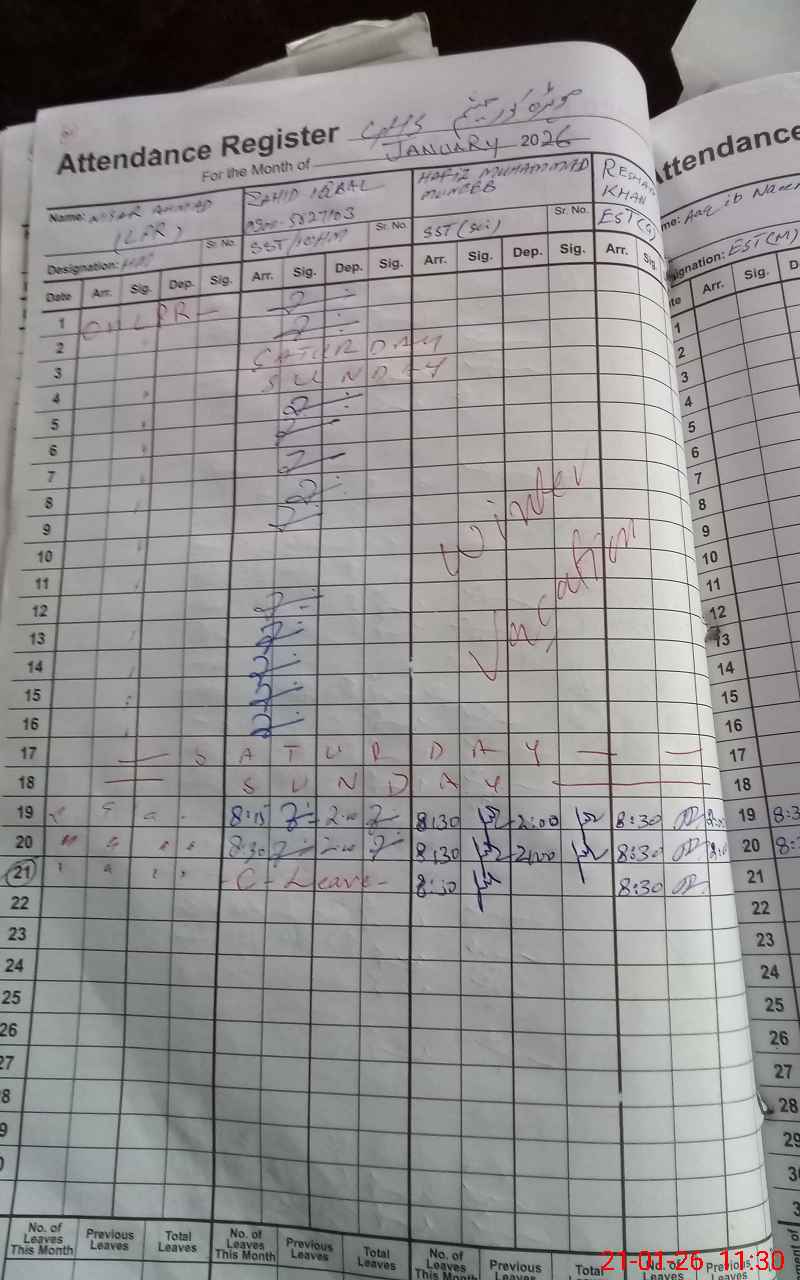 Attendance Register GHS
For the Month of JANUARY 2026
Name: NISAR AHMAD (LPR) ZAHID IQBAL HAFIZ MUHAMMAD MUNEEB RESHAM KHAN
Sr. No. SST/ Sr. No. SST (Sci) Sr. No. EST(G)
Designation:
Date Arr. Sig. Dep. Sig. Arr. Sig. Dep. Sig. Arr. Sig. Dep. Sig. Arr. Sig.
1 ON LPR
2
3 SATURDAY
4 SUNDAY
5
6
7
8
9
10
11
12
13
14
15
16
Winter
Vacation
17 SATURDAY
18 SUNDAY
19 8:15 2:00 8:30 2:00 8:30
20 8:30 2:00 8:30 2:00 8:30
21 C-Leave 8:30 8:30
22
23
24
25
26
27
8
9
0
No. of Leaves This Month Previous Leaves Total Leaves No. of Leaves This Month Previous Leaves Total Leaves No. of Leaves This Month Previous Leaves Total No. of Leaves Previous
ttendance
me: Aaqib
signation: EST(M)
te Arr. Sig. D
1
2
3
4
5
6
7
8
9
10
11
12
13
14
15
16
17
18
19 8:3
20 8:
21
22
23
24
25
26
27
28
29
30
3
21-01-26 11:30